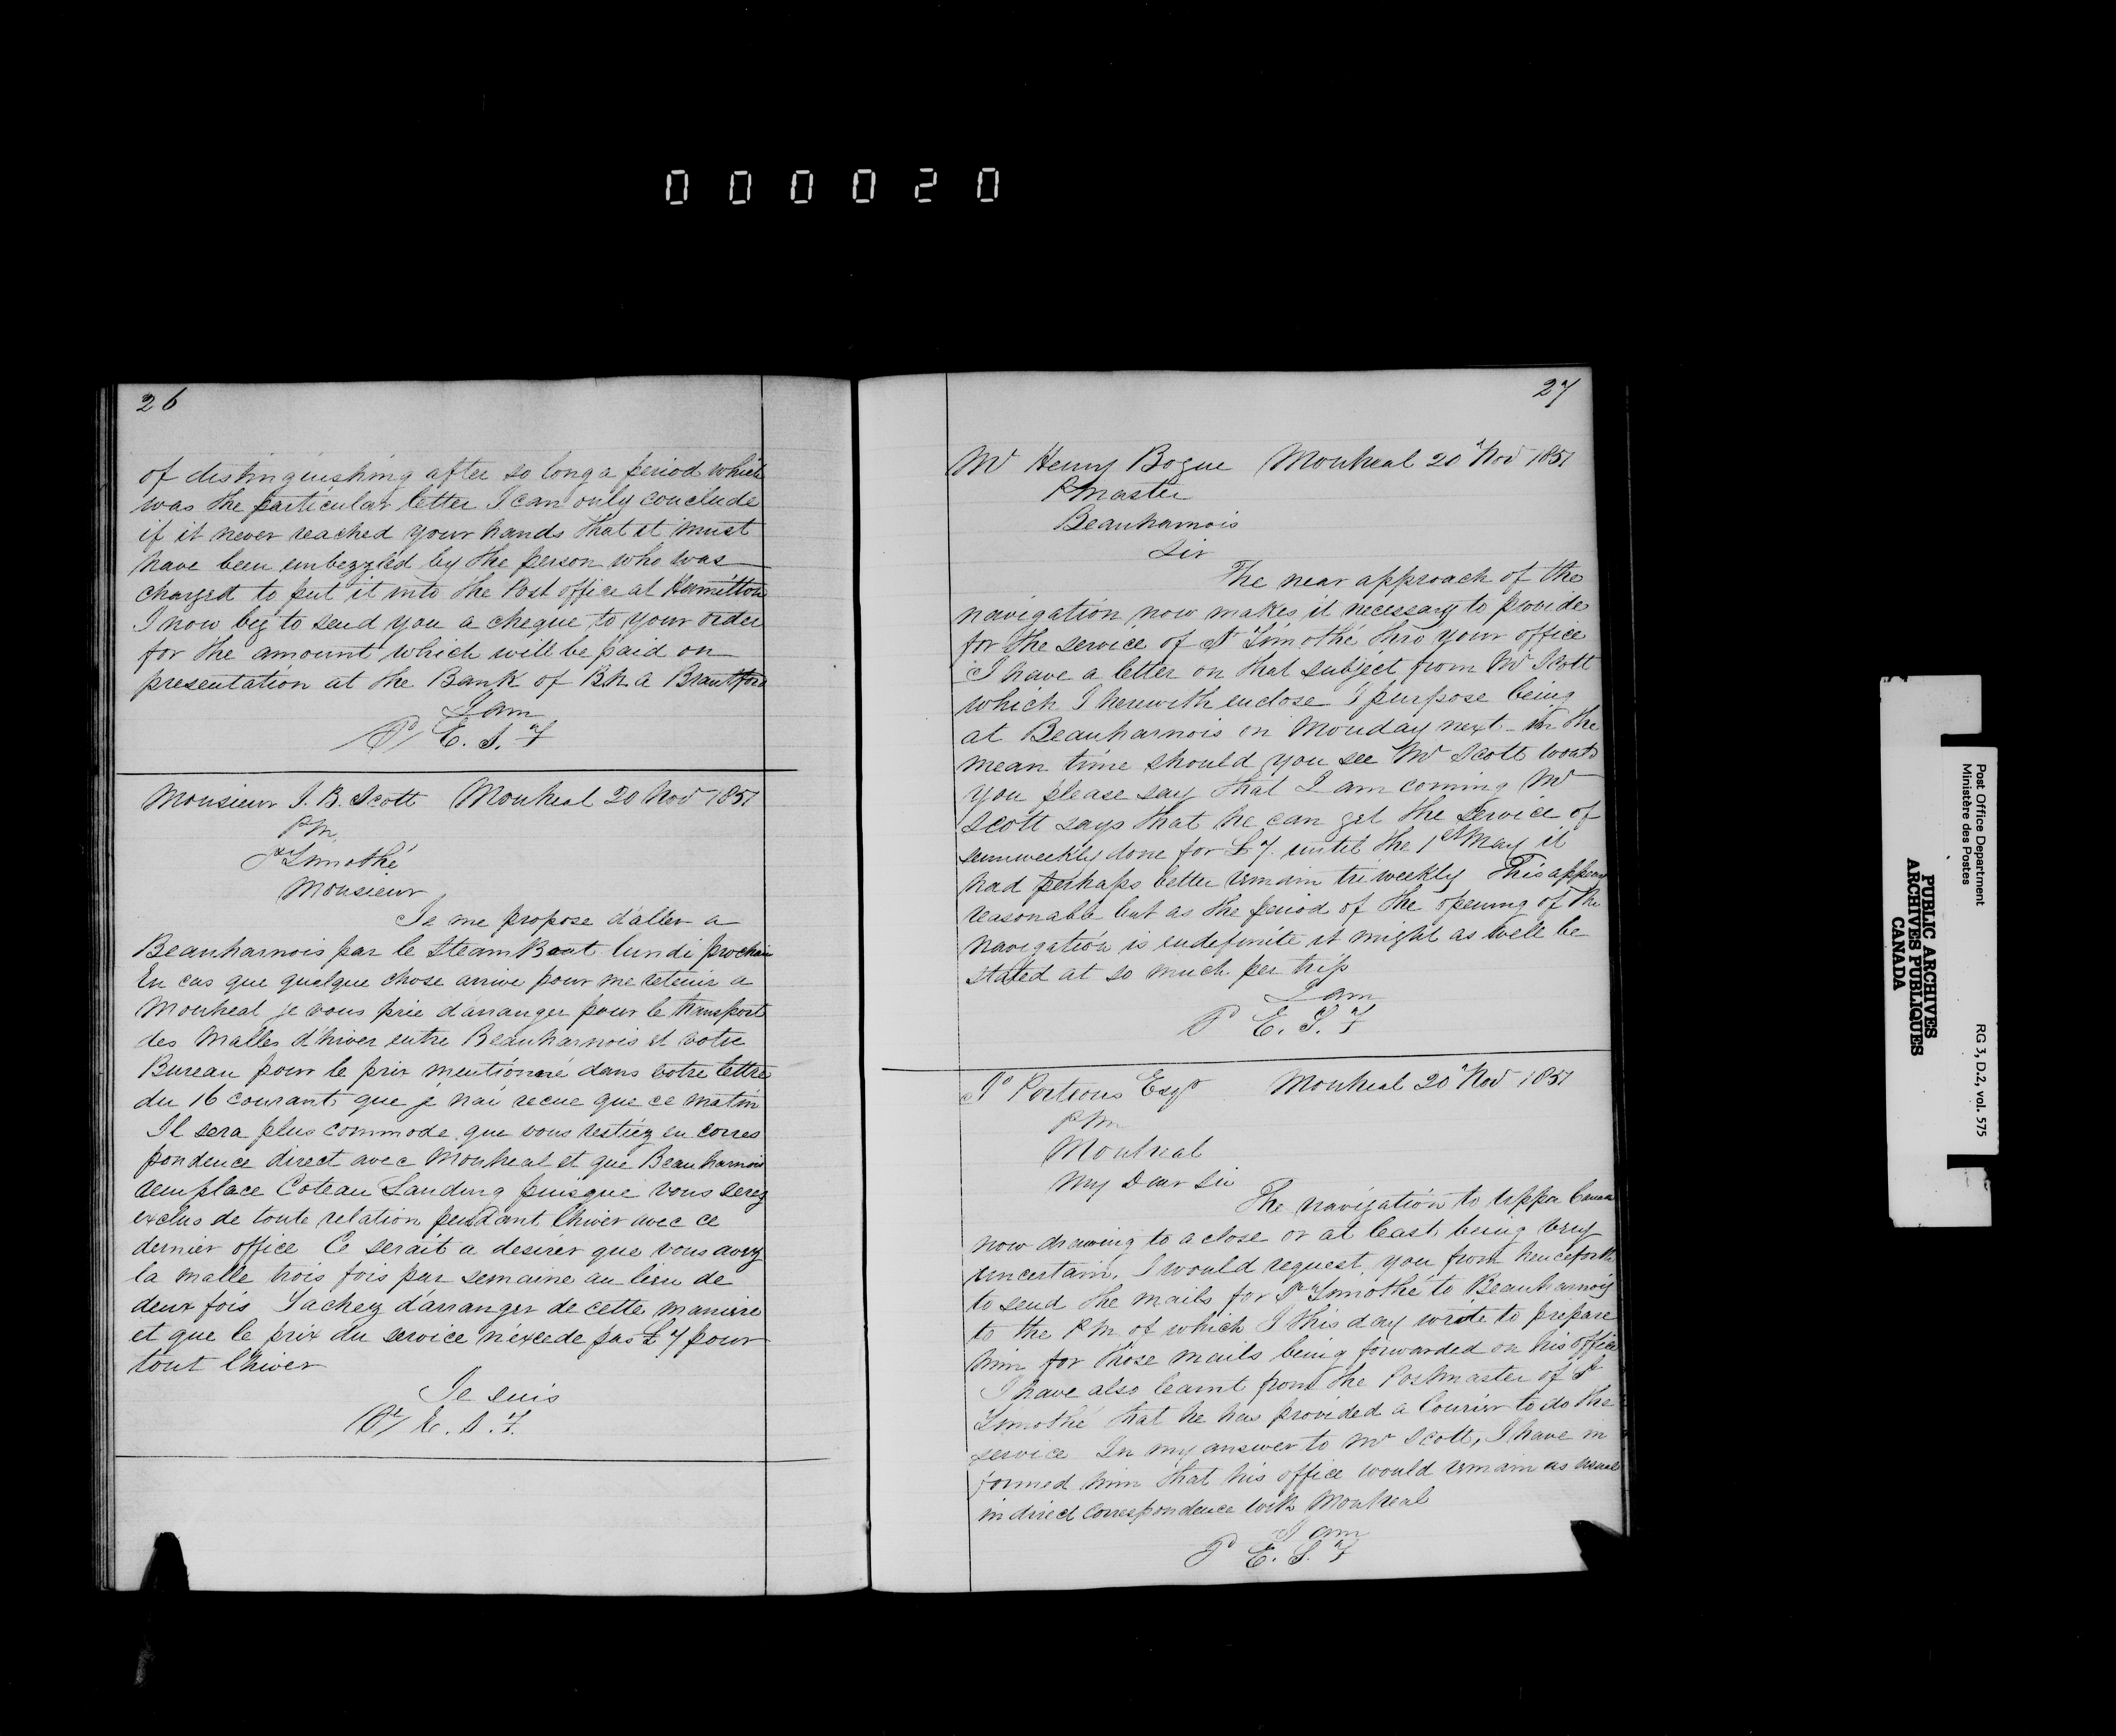 000020
26
of distinguishing after so long a period which
was the particular letter I can only conclude
if it never reached your hands that it must
have been embezzled by the person who was
charged to put it into the Post office at Hamilton
I now beg to send you a cheque to your order
for the amount which will be paid on
presentation at the Bank of B N A Brantford
I am
E. S. F
Monsieur J. B. Scott Montreal 20 Nov 1851
PM
St Timothé
Monsieur
Je me propose d'aller a
Beauharnois par le Steam Boat lundi prochain
En cas que quelque chose arrive pour me retenir a
Montreal je vous prie d'arranger pour le transport
des Malles d'hiver entre Beauharnois et votre
Bureau pour le prix mentionné dans votre lettre
du 16 courant que je n'ai recue que ce matin
Il sera plus commode que vous restiez en corres
pondence direct avec Montreal et que Beauharnois
remplace Coteau Landing puisque vous serez
exclus de toute relation pendant l'hiver avec ce
dernier office Ce serait a desirer que vous avez
la malle trois fois par semaine au lieu de
deux fois Tachez d'arranger de cette maniere
et que le prix du service n'excede pas £7 pour
tout l'hiver
Je suis
E. S. F.
27
Mr Henry Bogue Montreal 20 Nov 1851
PMaster
Beauharnois
Sir
The near approach of the
navigation now makes it necessary to provide
for the service of St Timothé thro your office
I have a letter on that subject from Mr Scott
which I herewith enclose I purpose being
at Beauharnois on Monday next - In the
mean time should you see Mr Scott would
you please say that I am coming Mr
Scott says that he can get the service of
semiweekly done for £7. until the 1st May it
had perhaps better remain tri weekly This appears
reasonable but as the period of the opening of the
navigation is indefinite it might as well be
stated at so much per trip
I am
E. S. F
Porteous Esqr Montreal 20 Nov 1851
PM
Montreal
My Dear Sir
The navigation to Upper Canada
now drawing to a close or at least being very
uncertain, I would request you from henceforth
to send the mails for St Timothé to Beauharnois
to the PM of which I this day wrote to prepare
him for those mails being forwarded on his office
I have also learnt from the Postmaster of St
Timothé that he has provided a Courier to do the
service In my answer to Mr Scott, I have in
formed him that his office would remain as usual
in direct correspondence with Montreal
I am
E. S. F
Post Office Department
Ministère des Postes
RG 3, D.2, vol. 575
PUBLIC ARCHIVES
ARCHIVES PUBLIQUES
CANADA